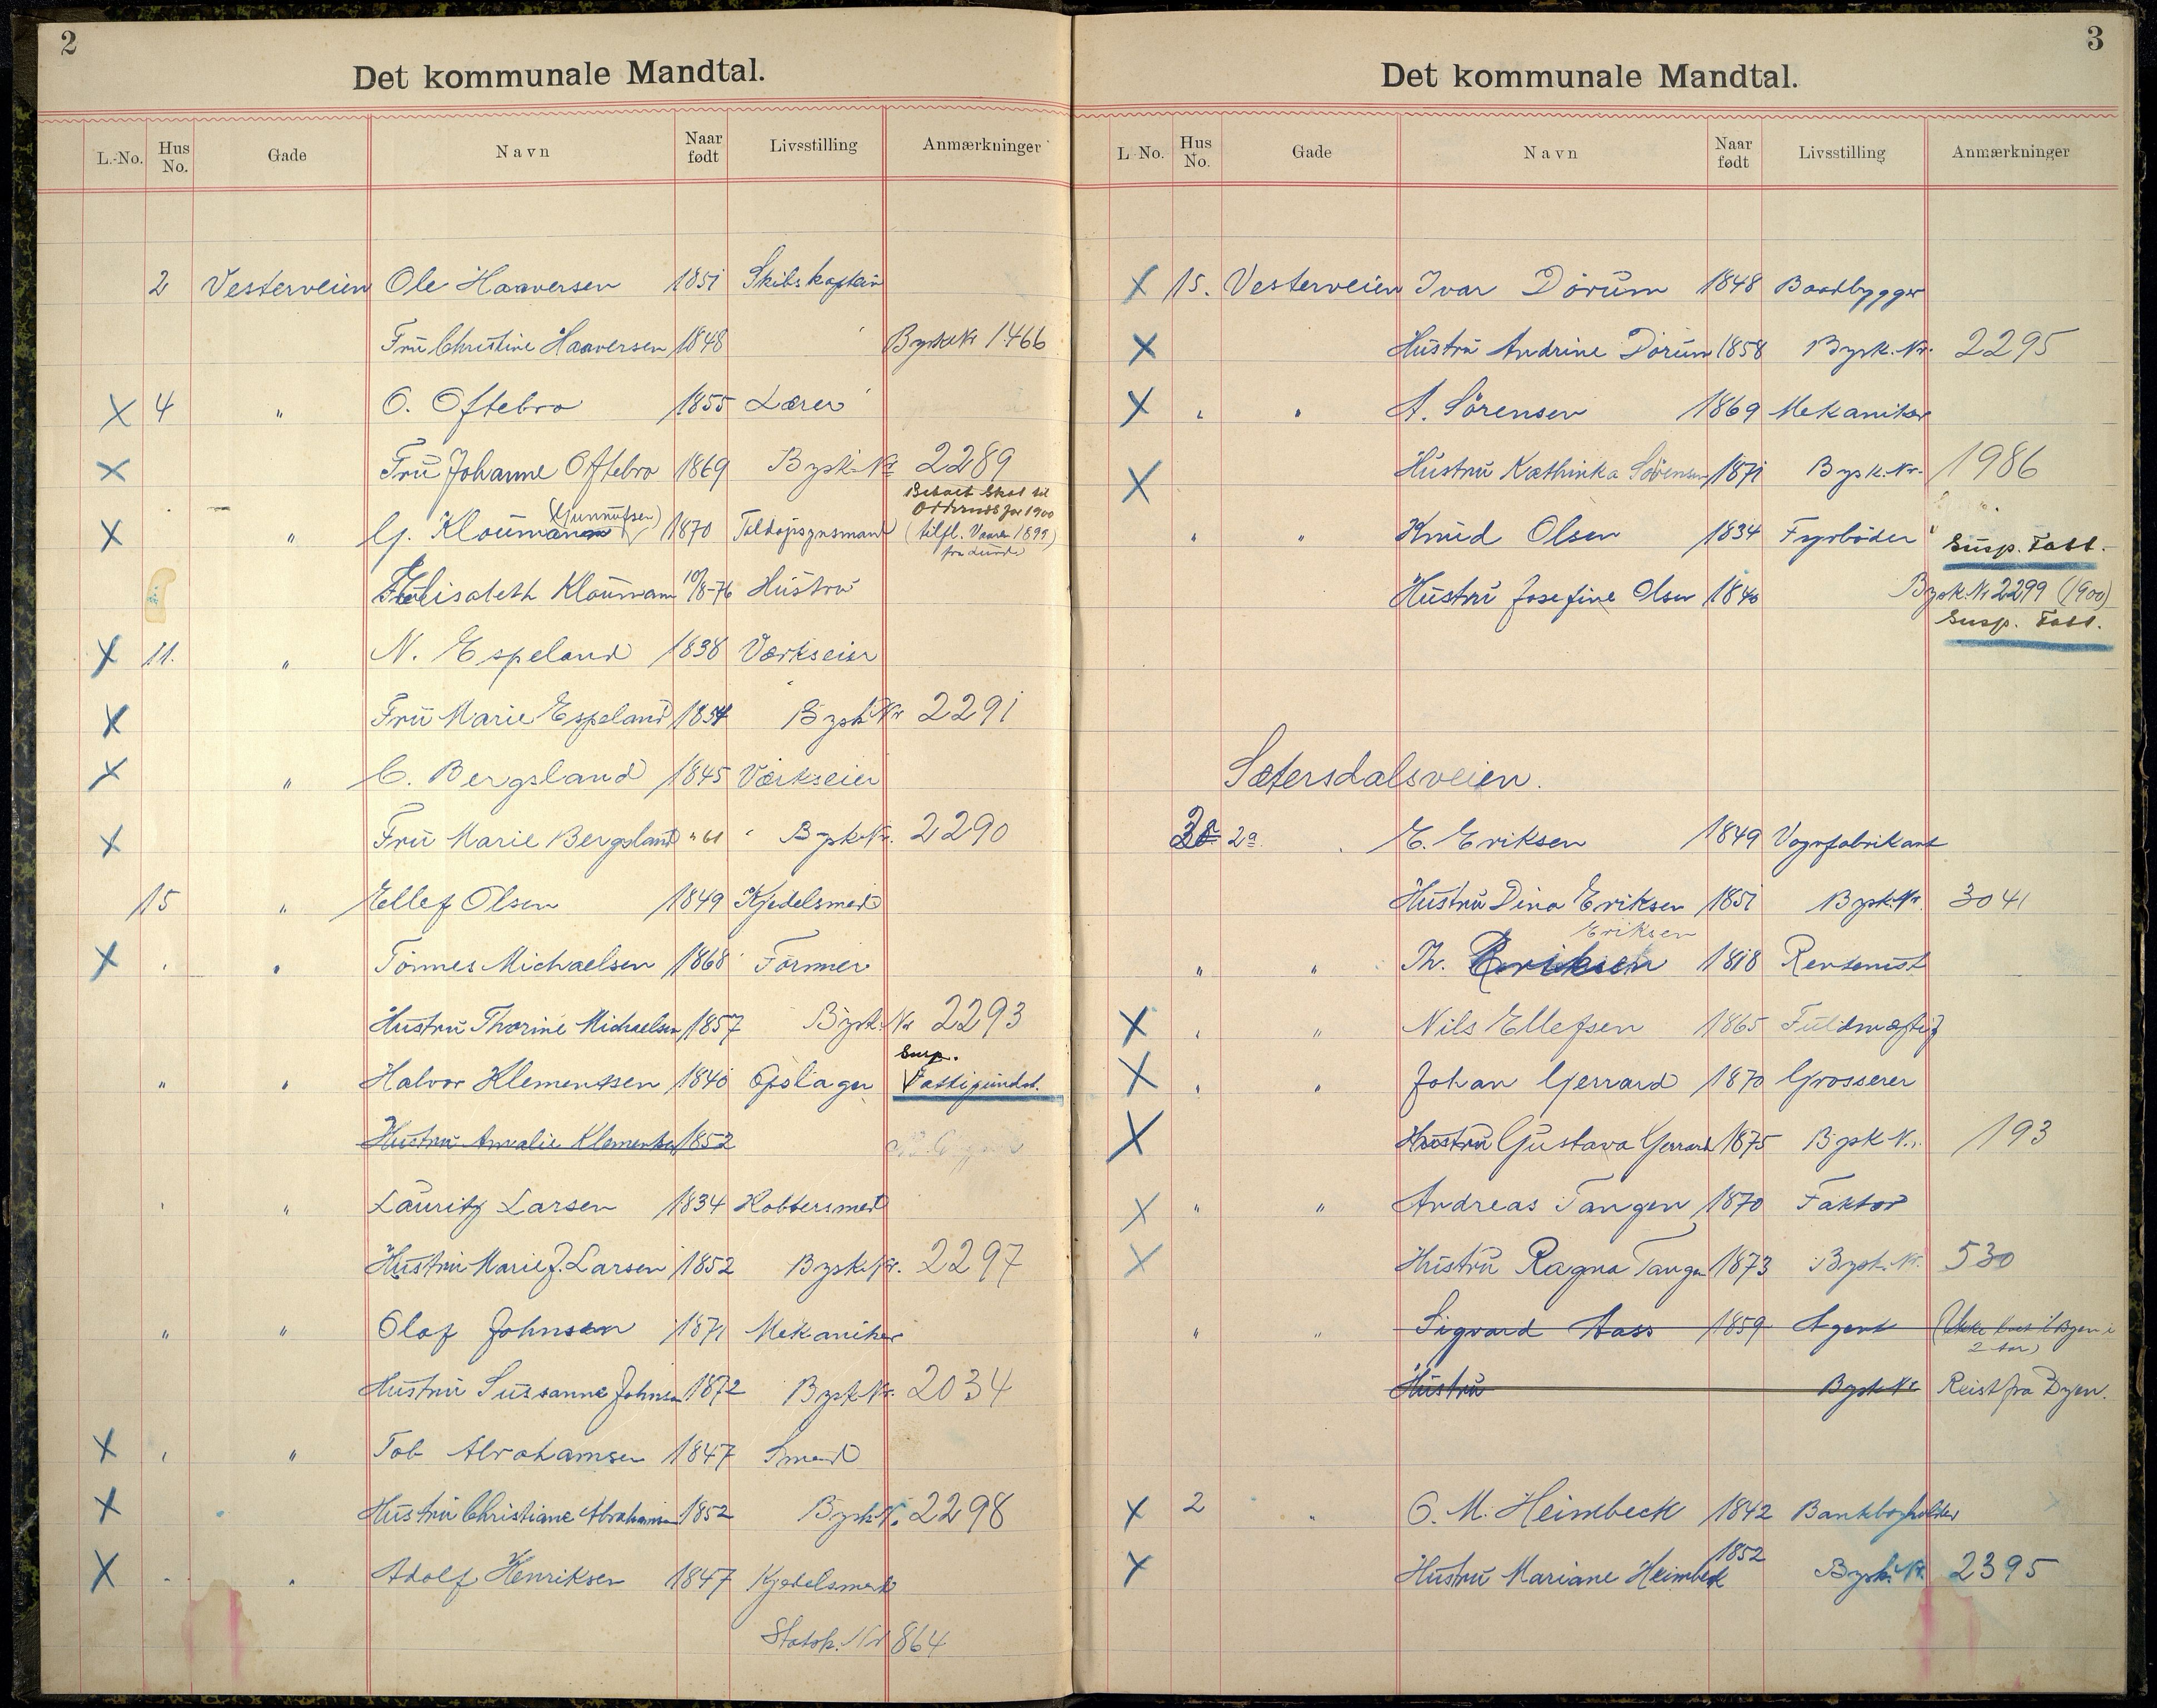 2
Det kommunale Mandtal.
L.-No. Hus No. Gade Navn Naar født Livsstilling Anmærkninger
2 Vesterveien Ole Haaversen 1851 Skibskaptein
Fru Christine Haaversen 1848 Bysk Nr 1466
X 4 " O. Oftebro 1855 Lærer
X Fru Johanne Oftebro 1869 Bysk. Nr 2289
Betalt Skat til Odderness for 1900
(Gunnufsen)
X " G. Kloumann 1870 Toldopsynsmand (tilfl. Vaaren 1899 fra Lunde)
Elisabeth Kloumann 10/8-76 Hustru
X 11. " N. Espeland 1838 Værkseier
X Fru Marie Espeland 1854 Bysk. Nr 2291
X " C. Bergsland 1845 Værkseier
X Fru Marie Bergsland " 61 " Bysk. Nr. 2290
15 " Ellef Olsen 1849 Kjedelsmed
X " " Tönnes Michaelsen 1868 Former
Hustru Thorine Michaelsen 1857 Bysk. Nr 2293
" " Halvor Klementsen 1840 Opslager Susp. Fattigunderst.
Hustru Amalie Klementsen 1852
" " Lauritz Larsen 1834 Kobbersmed
Hustru Marie J. Larsen 1852 Bysk. Nr. 2297
" " Olaf Johnsen 1871 Mekaniker
Hustru Sussanne Johnsen 1872 Bysk. Nr. 2034
X " " Tob Abrahamsen 1847 Smed
X Hustru Christiane Abrahamsen 1852 Bysk. Nr. 2298
X " " Adolf Henriksen 1847 Kjedelsmed
Statsk. Nr 864
3
Det kommunale Mandtal.
L No. Hus No. Gade Navn Naar født Livsstilling Anmærkninger
X 15. Vesterveien Ivar Dörum 1848 Baadbygger
X Hustru Andrine Dörum 1858 Bysk. Nr. 2295
X " " A. Sörensen 1869 Mekaniker
X Hustru Kathinka Sörensen 1871 Bysk. Nr. 1986
" " Knud Olsen 1834 Fyrböder Susp. Fatt.
Hustru Josefine Olsen 1840 Bysk Nr 2299 (1900)
Susp. Fatt.
Sætersdalsveien.
2a. E. Eriksen 1849 Vognfabrikant
Hustru Dina Eriksen 1851 Bysk. Nr. 3041
Eriksen
" " Th. Eriksen 1818 Rentenist
X " " Nils Ellefsen 1865 Fuldmægtig
X " " Johan Gerrard 1870 Grosserer
X Hustru Gustava Gerrard 1875 Bysk Nr. 193
X " " Andreas Tangen 1870 Faktor
X Hustru Ragna Tangen 1873 Bysk. Nr. 530
" " Sigvard Aass 1859 Agent (Ikke boet i Byen i 2 Aar)
Hustru Bysk Nr Reist fra Byen.
X 2 " O. M. Heimbeck 1842 Bankbogholder
X Hustru Mariane Heimbeck 1852 Bysk. Nr. 2395